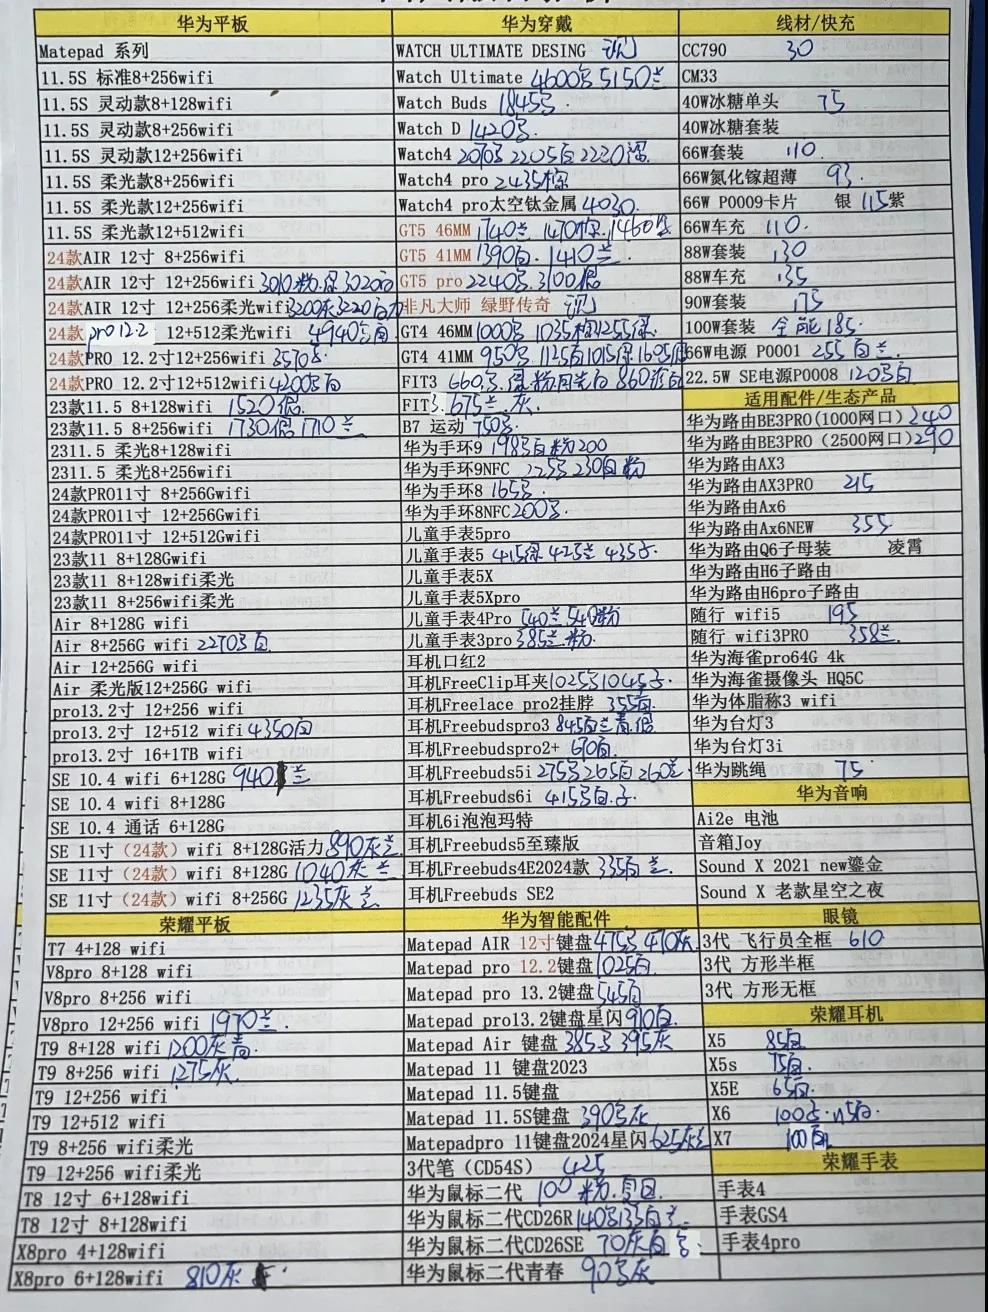 华为平板
Matepad 系列
11.5S 标准8+256wifi
11.5S 灵动款8+128wifi
11.5S 灵动款8+256wifi
11.5S 灵动款12+256wifi
11.5S 柔光款8+256wifi
11.5S 柔光款12+256wifi
11.5S 柔光款12+512wifi
24款AIR 12寸 8+256wifi
24款AIR 12寸 12+256wifi 3010粉.绿3020白
24款AIR 12寸 12+256柔光wifi 3200灰3220白
24款 pro12.2 12+512柔光wifi 4940 白
24款PRO 12.2寸12+256wifi 3570
24款PRO 12.2寸12+512wifi 4200 白
23款11.5 8+128wifi 1520
23款11.5 8+256wifi 1730 1710兰
2311.5 柔光8+128wifi
2311.5 柔光8+256wifi
24款PRO11寸 8+256Gwifi
24款PRO11寸 12+256Gwifi
24款PRO11寸 12+512Gwifi
23款11 8+128Gwifi
23款11 8+128wifi柔光
23款11 8+256wifi柔光
Air 8+128G wifi
Air 8+256G wifi 2270 白
Air 12+256G wifi
Air 柔光版12+256G wifi
pro13.2寸 12+256 wifi
pro13.2寸 12+512 wifi 4350白
pro13.2寸 16+1TB wifi
SE 10.4 wifi 6+128G 940 兰
SE 10.4 wifi 8+128G
SE 10.4 通话 6+128G
SE 11寸（24款）wifi 8+128G活力 890灰兰
SE 11寸（24款）wifi 8+128G 1040灰兰
SE 11寸（24款）wifi 8+256G 1235灰兰
荣耀平板
T7 4+128 wifi
V8pro 8+128 wifi
V8pro 8+256 wifi
V8pro 12+256 wifi 1970兰.
T9 8+128 wifi 1200灰青.
T9 8+256 wifi 1275灰.
T9 12+256 wifi
T9 12+512 wifi
T9 8+256 wifi柔光
T9 12+256 wifi柔光
T8 12寸 6+128wifi
T8 12寸 8+128wifi
X8pro 4+128wifi
X8pro 6+128wifi 810灰
华为穿戴
WATCH ULTIMATE DESING 沉
Watch Ultimate 4600 5150兰
Watch Buds 1845
Watch D 1420
Watch4 2070 2205白 2230
Watch4 pro 2435棕
Watch4 pro太空钛金属 4030.
GT5 46MM 1740兰 1470棕. 1460
GT5 41MM 1390白. 1410兰
GT5 pro 2240 .3100
非凡大师 绿野传奇 沉
GT4 46MM 1000 1035棕1255绿.
GT4 41MM 950 1125白1015绿1695
FIT3 660 .绿粉 白 860
FIT3. 675兰.灰.
B7 运动 750
华为手环9 198 白粉200
华为手环9NFC 225 230白粉
华为手环8 165
华为手环8NFC 200
儿童手表5pro
儿童手表5 415绿 425兰 435
儿童手表5X
儿童手表5Xpro
儿童手表4Pro 540兰 540粉
儿童手表3pro 385兰.粉.
耳机口红2
耳机FreeClip耳夹 1025 1045
耳机Freelace pro2挂脖 355
耳机Freebudspro3 845白兰青.
耳机Freebudspro2+ 690白.
耳机Freebuds5i 275 265白 260兰
耳机Freebuds6i 415 白.
耳机6i泡泡玛特
耳机Freebuds5至臻版
耳机Freebuds4E2024款 335白兰.
耳机Freebuds SE2
华为智能配件
Matepad AIR 12寸键盘 475 470灰
Matepad pro 12.2键盘 1025白.
Matepad pro 13.2键盘 545白
Matepad pro13.2键盘星闪 910白
Matepad Air 键盘 385 395灰
Matepad 11 键盘2023
Matepad 11.5键盘
Matepad 11.5S键盘 390 灰
Matepadpro 11键盘2024星闪 625灰兰
3代笔（CD54S） 425
华为鼠标二代 100 粉.
华为鼠标二代CD26R 140 135白兰
华为鼠标二代CD26SE 70灰白
华为鼠标二代青春 90 灰
线材/快充
CC790 30
CM33
40W冰糖单头 75
40W冰糖套装
66W套装 110
66W氮化镓超薄 93.
66W P0009卡片 银 115紫
66W车充 110.
88W套装 130
88W车充 135
90W套装 175
100W套装 全能185.
66W电源 P0001 255白兰.
22.5W SE电源P0008 120 白
适用配件/生态产品
华为路由BE3PRO(1000网口) 240
华为路由BE3PRO（2500网口) 290
华为路由AX3
华为路由AX3PRO 215
华为路由Ax6
华为路由Ax6NEW 355
华为路由Q6子母装 凌霄
华为路由H6子路由
华为路由H6pro子路由
随行 wifi5 195
随行 wifi3PRO 358兰.
华为海雀pro64G 4k
华为海雀摄像头 HQ5C
华为体脂称3 wifi
华为台灯3
华为台灯3i
华为跳绳 75
华为音响
Ai2e 电池
音箱Joy
Sound X 2021 new鎏金
Sound X 老款星空之夜
眼镜
3代 飞行员全框 610
3代 方形半框
3代 方形无框
荣耀耳机
X5 85白
X5s 75白.
X5E 65白.
X6 100 . 115白.
X7 100白
荣耀手表
手表4
手表GS4
手表4pro